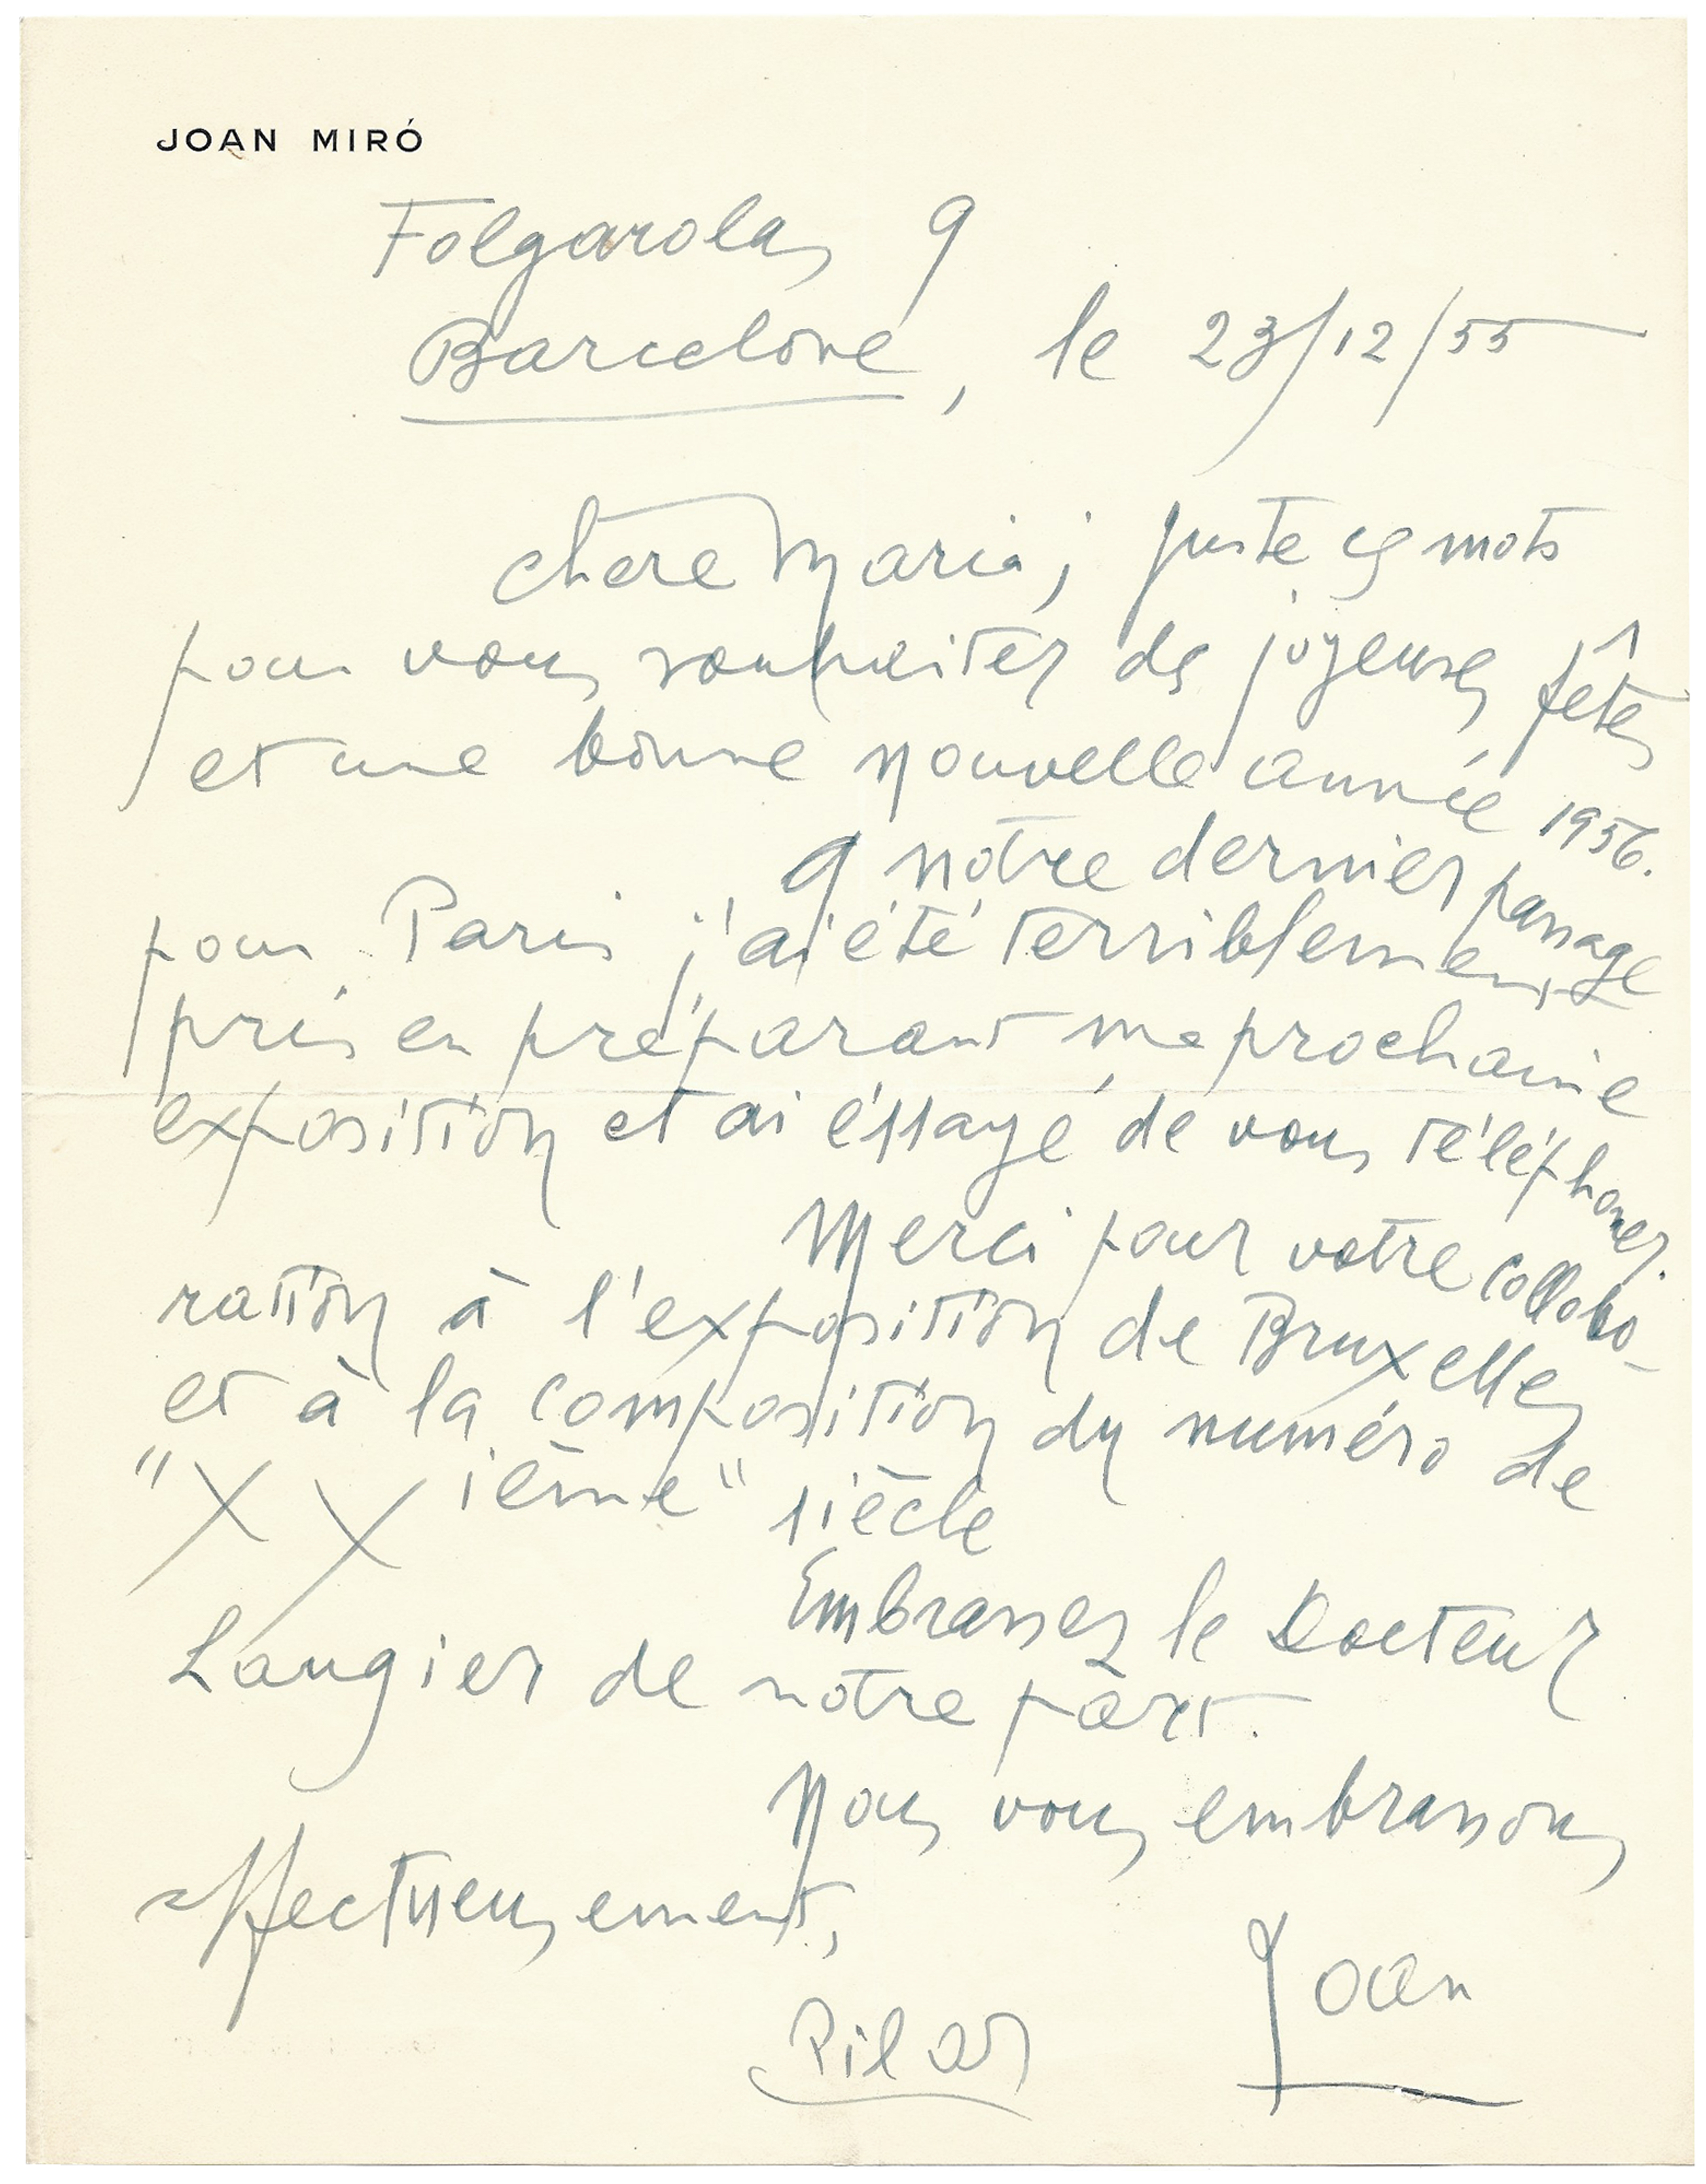 JOAN MIRÓ
Folgarolas 9
Barcelone, le 23/12/55
chère Maria; juste ces mots
pour vous souhaiter des joyeuses fêtes
et une bonne nouvelle année 1956.
A notre dernier passage
pour Paris j'ai été terriblement
pris en préparant ma prochaine
exposition et ai éssayé de vous téléphoner.
Merci pour votre collabo-
ration à l'exposition de Bruxelles
et à la composition du numéro de
"XXième" siècle
Embrassez le Docteur
Laugier de notre part.
Nous vous embrassons
affectueusement,
Pilar Joan